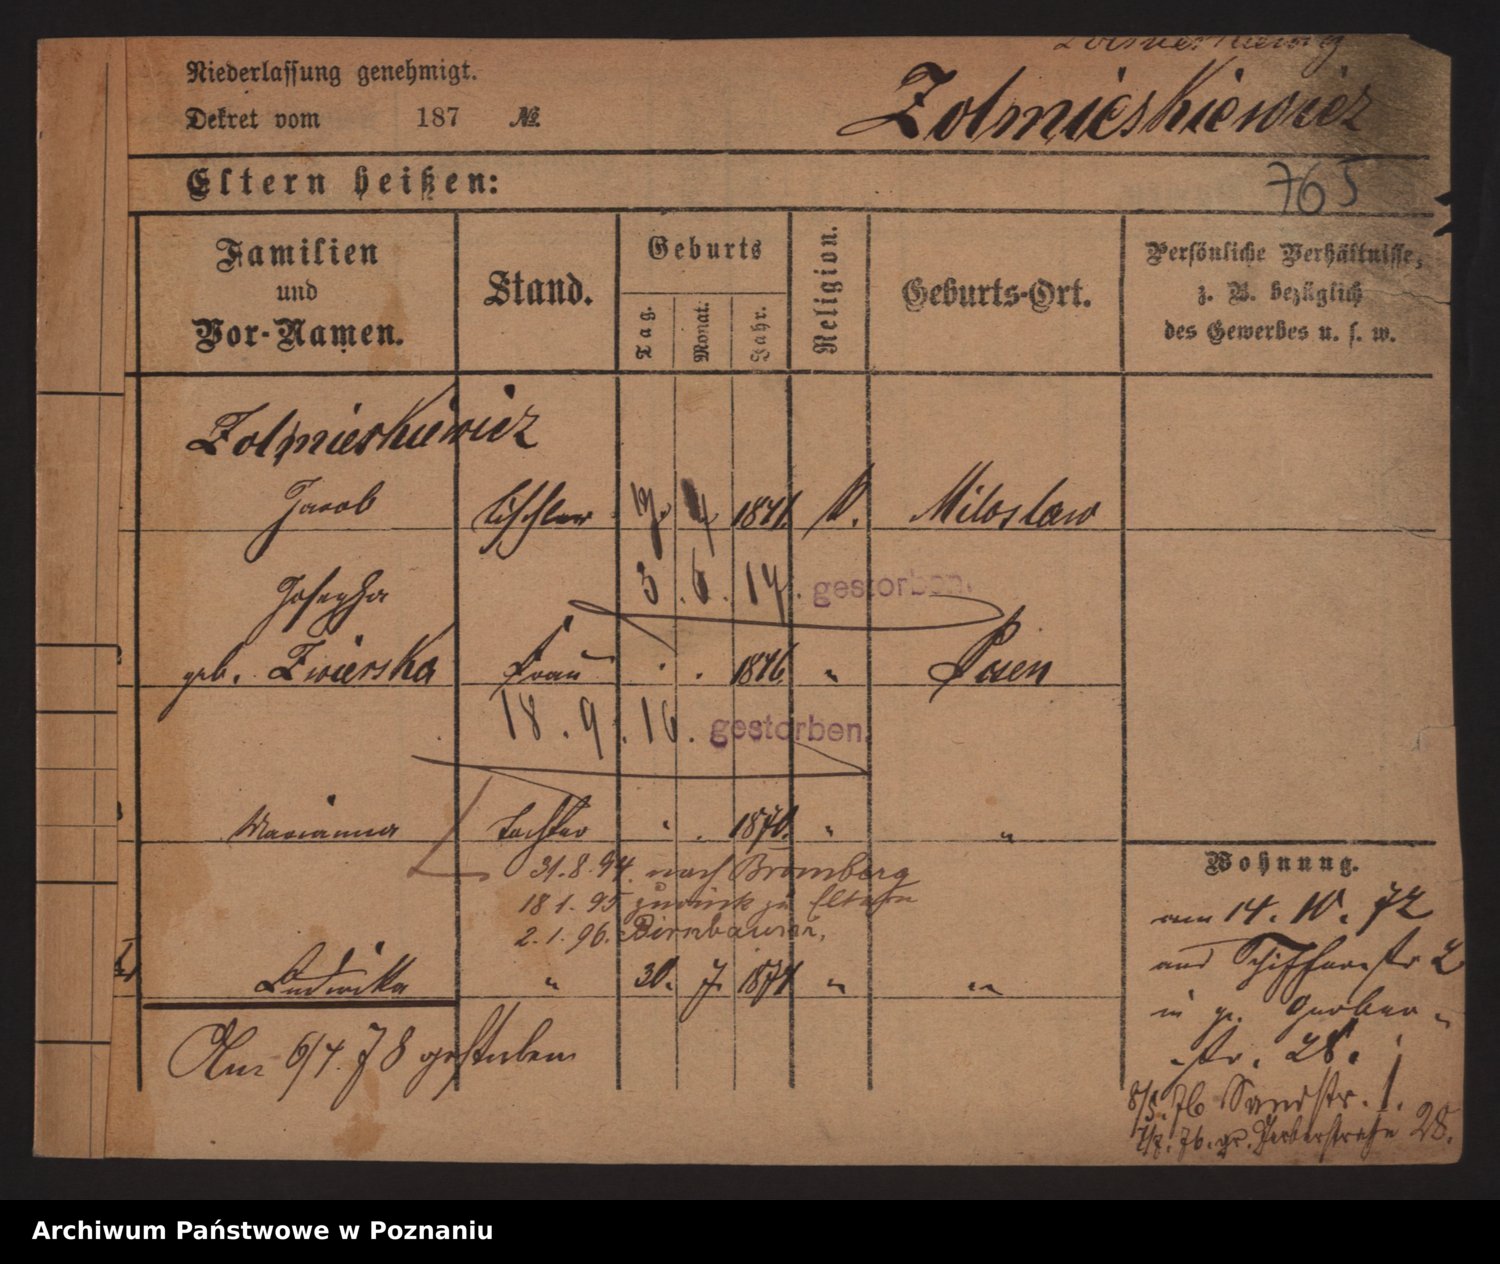 Niederlassung genehmigt.
Dekret vom 187 №.
Zolmieskiewicz
765
Eltern heißen:
Familien und Vor-Namen.
Stand.
Geburts
Tag.
Monat.
Jahr.
Religion.
Geburts-Ort.
Persönliche Verhältnisse,
z. B. bezüglich
des Gewerbes u. s. w.
Zolmieskiewicz
Jacob Tischler 1841. K. Miloslaw
3. 6. 14. gestorben.
Josepha
geb. Zwierska Frau 1846. " Posen
18. 9. 16. gestorben.
Marianna Tochter 1870. " "
31. 8. 94. nach Bromberg
18 1. 95 zurück zu Eltern
2. 1. 96. Birnbaum,
Ludwika " 30. 7. 1871 " "
6/4. 78 gestorben
Wohnung.
am 14. 10. 72
aus Schifferstr 2
in gr. Gerber-
str. 28.
76 Sandstr. 1.
76. gr. Gerberstraße 28.
Archiwum Państwowe w Poznaniu